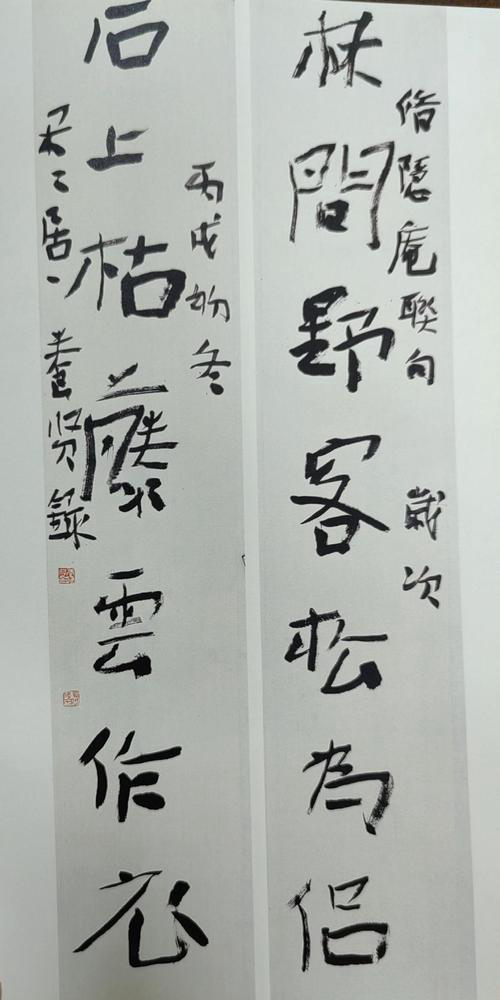 偕隱庵聯句 歲次
林間野客松為侶
丙戌初冬
石上枯藤雲作衣
居 養賢錄